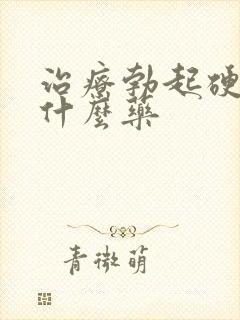 治療勃起硬
什麼藥
青微萌